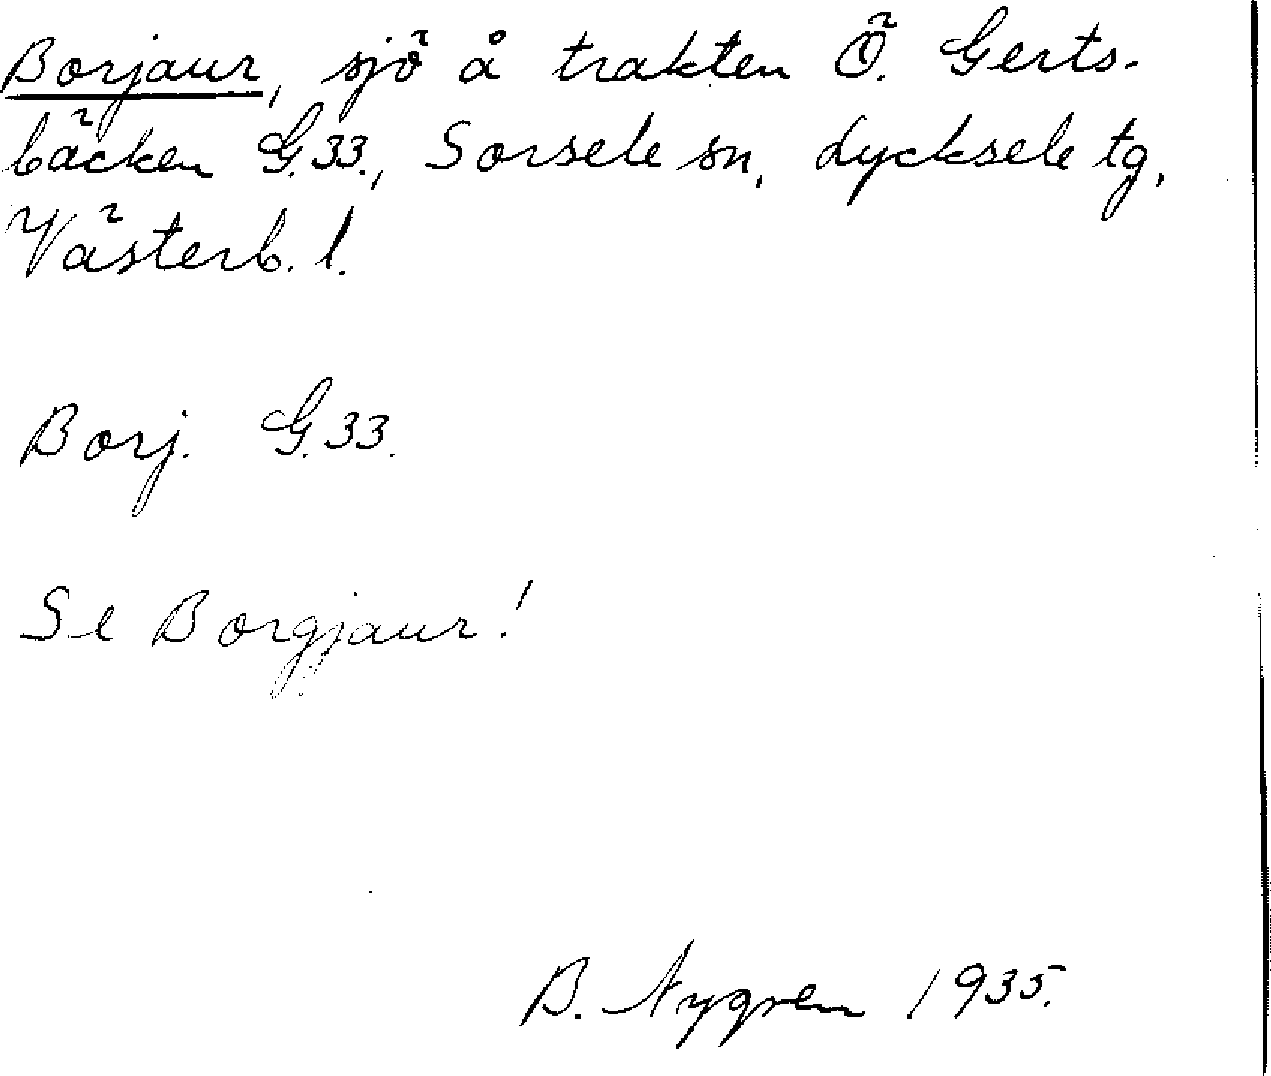 Borjaur, sjö å trakten Ö. Gerts-
bäcken G.33., Sorsele sn, Lycksele tg,
Västerb. l.
Borj. G.33.
Se Borgjaur!
B. Nygren 1935.